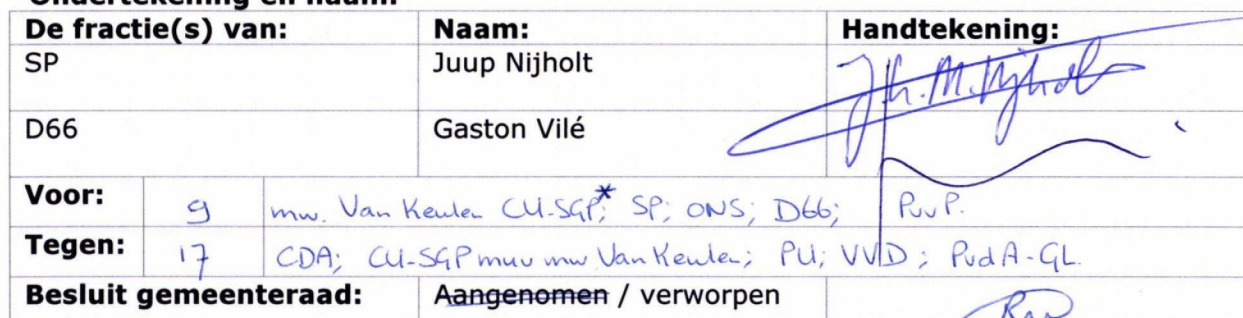 Ondertekening en naam:
De fractie(s) van: Naam: Handtekening:
SP Juup Nijholt J.h.M.Nijholt
D66 Gaston Vilé
Voor: 9 mw. Van Keulen CU-SGP*; SP; ONS; D66; PvvP.
Tegen: 17 CDA; CU-SGP muv mw Van Keulen; PU; VVD; PvdA-GL.
Besluit gemeenteraad: Aangenomen / verworpen